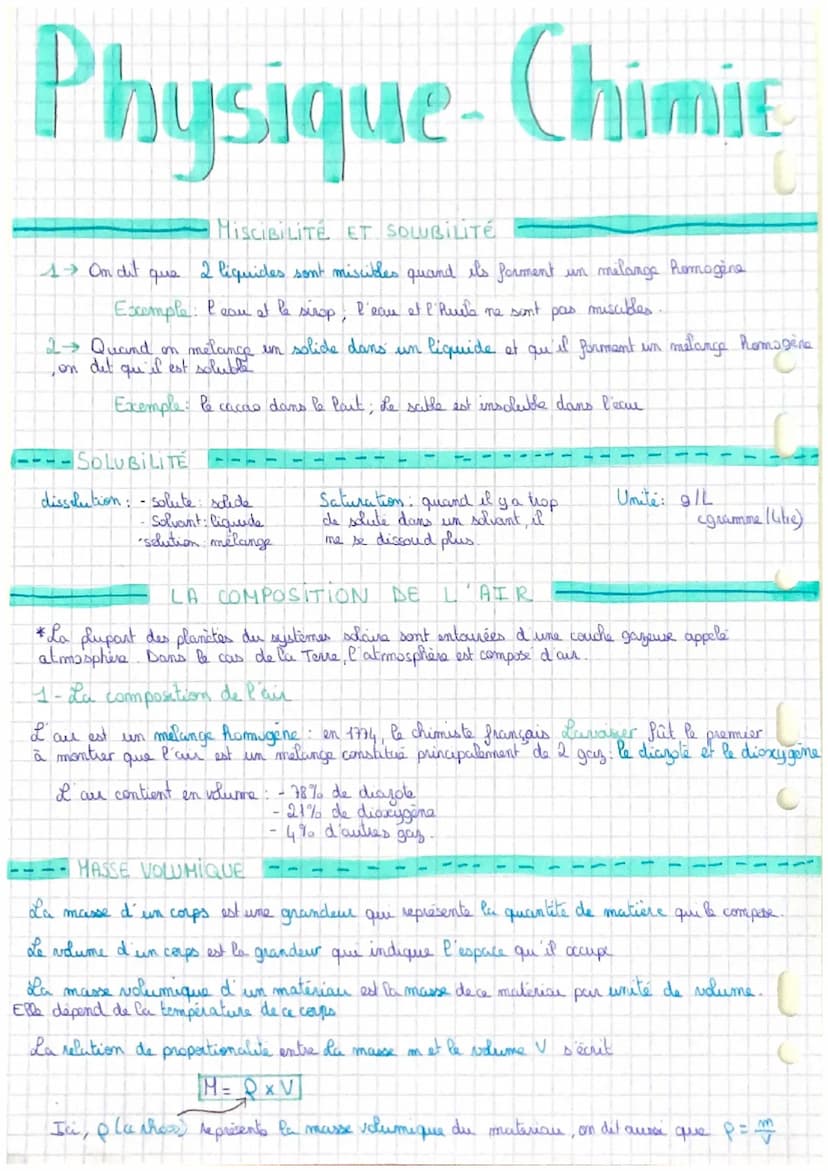 Physique-Chimie
MISCIBILITÉ ET SOLUBILITÉ
1→ On dit que 2 liquides sont miscibles quand ils forment un mélange homogène
Exemple: l'eau et le sirop; l'eau et l'huile ne sont pas miscibles.
2→ Quand on mélange un solide dans un liquide et qu'il forment un mélange homogène
, on dit qu'il est soluble
Exemple: le cacao dans le lait; le sable est insoluble dans l'eau
SOLUBILITÉ
dissolution: - soluté: solide
- Solvant: liquide
- solution: mélange
Saturation: quand il y a trop
de soluté dans un solvant, il
ne se dissoud plus.
Unité: g/L
(gramme/litre)
LA COMPOSITION DE L'AIR
*La plupart des planètes du systèmes solaire sont entourées d'une couche gazeuse appelé
atmosphère. Dans le cas de la Terre, l'atmosphère est composé d'air.
1-La composition de l'air
L'air est un mélange homogène: en 1774, le chimiste français Lavoisier fût le premier
à montrer que l'air est un mélange constitué principalement de 2 gaz: le diazote et le dioxygène
L'air contient en volume: - 78% de diazote
- 21% de dioxygène
- 4% d'autres gaz.
MASSE VOLUMIQUE
La masse d'un corps est une grandeur qui représente la quantité de matière qui le compose.
Le volume d'un corps est la grandeur qui indique l'espace qu'il occupe
La masse volumique d'un matériau est la masse de ce matériau par unité de volume.
Elle dépend de la température de ce corps
La relation de proportionalité entre la masse m et le volume V s'écrit
M = ρ x V
Ici, ρ représente la masse volumique du matériau, on dit aussi que ρ = m/V